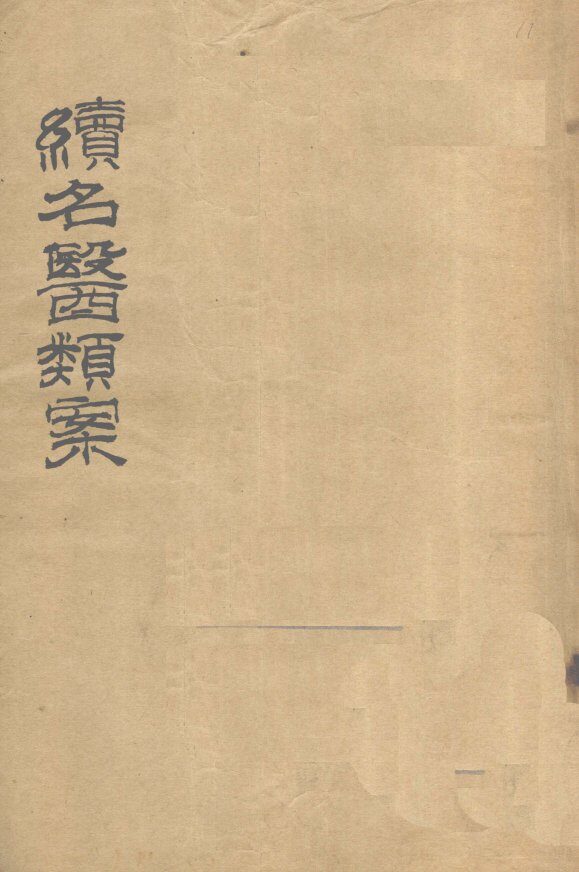 續名醫類案
11